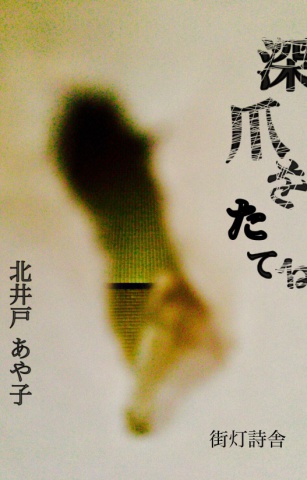 深爪をたてね
北井戸 あや子
街灯詩舎